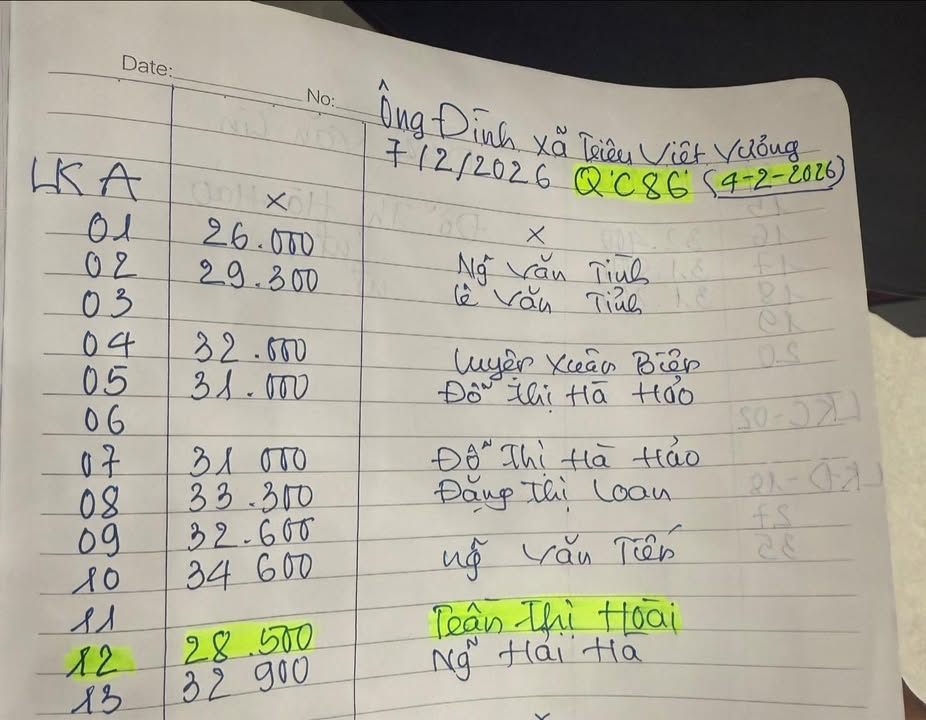 Date:
No:
Ông Đính xã Triệu Việt Vương
7/2/2026 QC86 (4-2-2026)
LK A
x x
01 26.000 Ng~ Văn Tình
02 29.300 Lê Văn Tình
03
04 32.000 Luyện Xuân Biên
05 31.000 Đỗ Thị Hà Hảo
06
07 31 000 Đỗ Thị Hà Hảo
08 33.300 Đặng Thị Loan
09 32.600 Ng~ Văn Tiến
10 34 600
11
12 28.500 Trần Thị Hoài
13 32 900 Ng~ Hải Hà